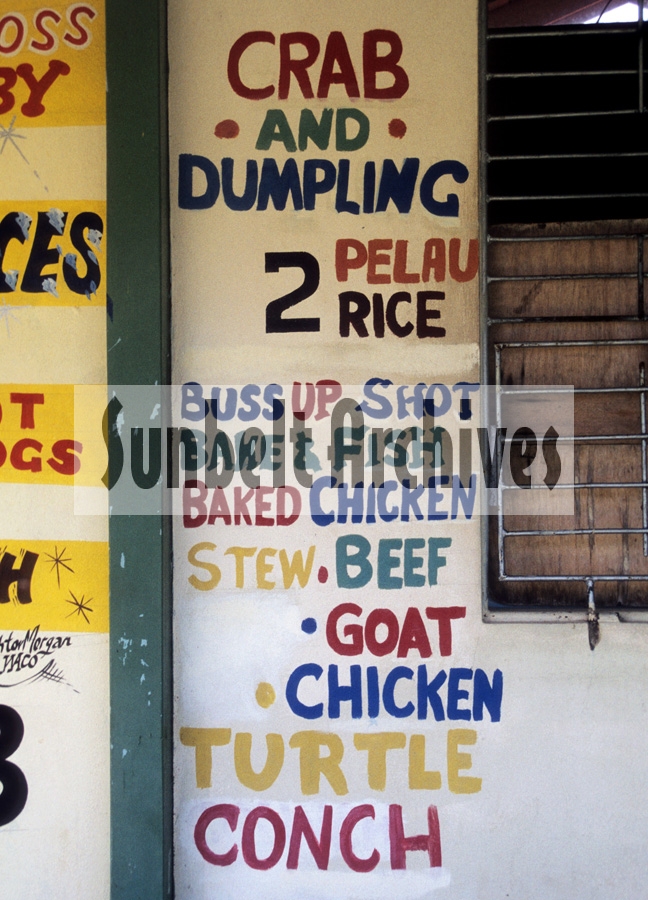 OSS
BY
CES
OT
OGS
H
Morgan
CRAB
• AND •
DUMPLING
2 PELAU
RICE
BUSS UP SHOT
BAKE & FISH
BAKED CHICKEN
STEW • BEEF
• GOAT
• CHICKEN
TURTLE
CONCH
Sunbelt Archives